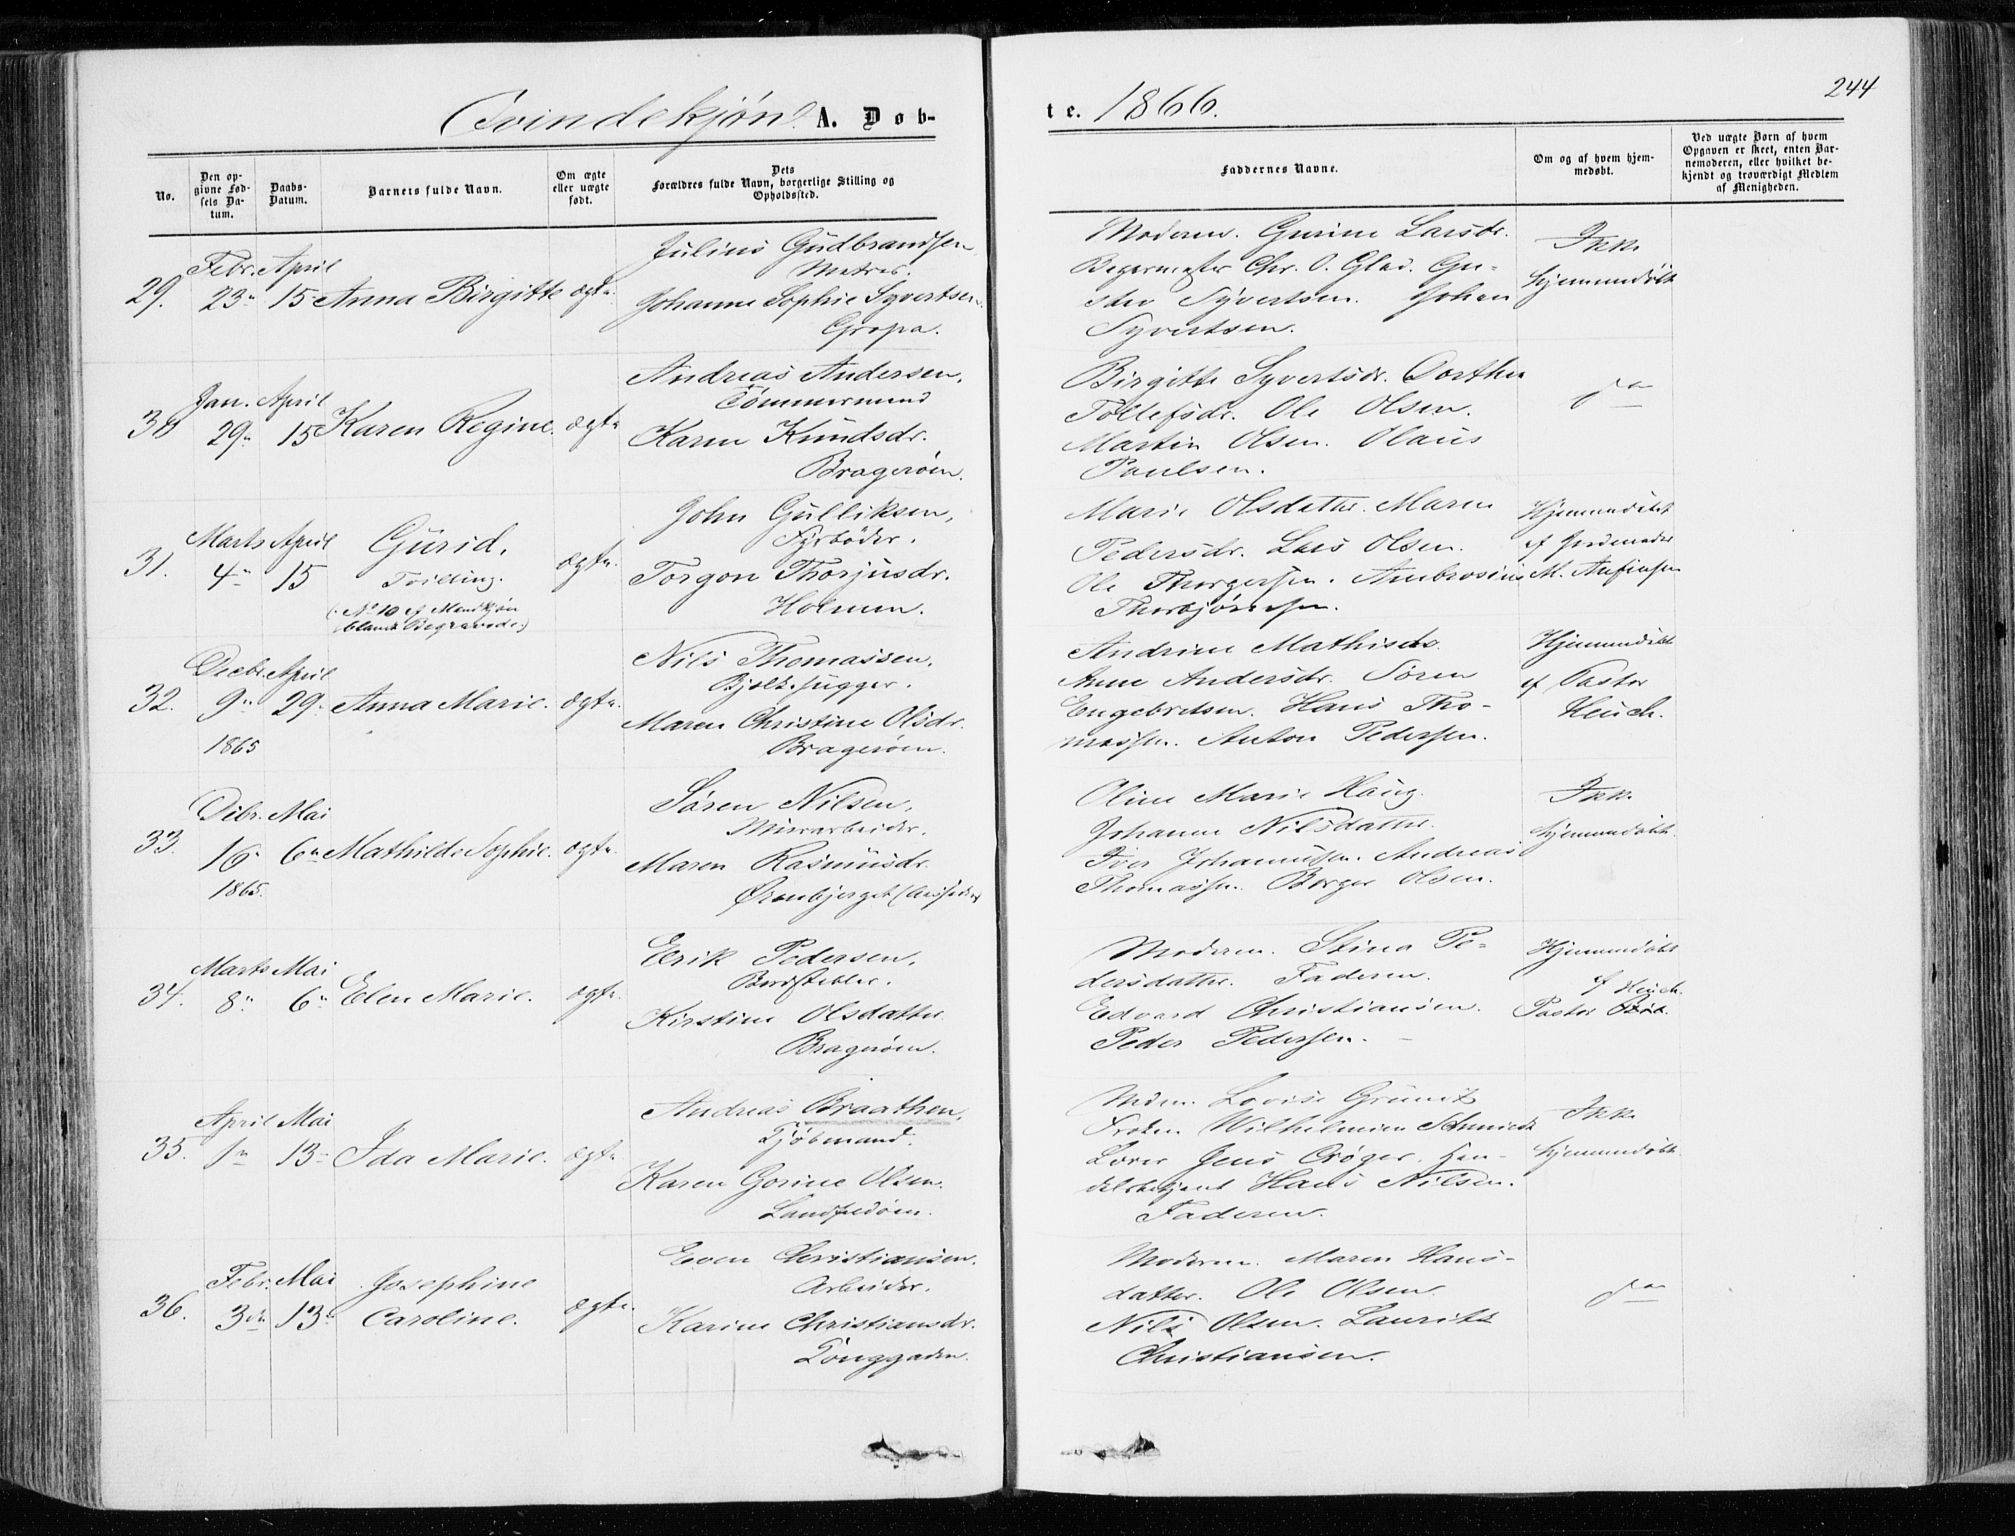 244
Qvindekjøn. A. Døb-
te. 1866.
No.
Den op-
givne Fød-
sels Da-
tum.
Daabs-
Datum.
Barnets fulde Navn.
Om ægte
eller uægte
født.
Dets
Forældres fulde Navn, borgerlige Stilling og
Opholdssted.
Faddernes Navne.
Om og af hvem hjem-
medøbt.
Ved uægte Børn af hvem
Opgaven er skeet, enten Bar-
nemoderen, eller hvilket be-
kjendt og troværdigt Medlem
af Menigheden.
29.
Febr.
23
April
15
Anna Birgitte
ægte
Julius Gudbrandsen
Matros.
Johanne Sophie Syvertsen.
Gropa.
Moderen. Gurine Larsdr.
Bøgermester Chr. O. Glad. Gu-
stav Syvertsen. Johan
Syvertsen.
Ikke
hjemmedøbt
30
Jan.
29
April
15
Karen Regine.
ægte
Andreas Andersen,
Tømmermand
Karen Knudsdr.
Bragerøen.
Birgitte Syvertsdr. Dorthea
Tollefsdr. Ole Olsen.
Martin Olsen. Olaus
Paulsen.
do
31.
Marts
4
April
15
Gurid,
Tvilling.
(No 10 af Mandkjøn
blandt Begravede.)
ægte.
John Gulliksen,
Fyrbøder.
Torgon Thorjusdr.
Holmen.
Marie Olsdatter. Maren
Pedersdr. Lars Olsen.
Ole Thorgersen. Ambrosius
Thorbjørnsen.
Hjemmedøbt
af Jordemoder
M. Anfinsen
32.
Decbr.
9
1865
April
29.
Anna Marie.
ægte.
Nils Thomassen.
Bjelkehugger.
Maren Christine Olsdr.
Bragerøen.
Andrine Mathisdr.
Anne Andersdr. Søren
Engebretsen. Hans Tho-
massen. Anton Pedersen.
Hjemmedøbt
af Pastor
Heuch.
33.
Dcbr.
16
1865.
Mai
6
Mathilde Sophie.
ægte.
Søren Nilsen,
Murarbeider.
Maren Rasmusdr.
Ørenbjerget
Oline Marie Haug.
Johanne Nilsdatter.
Iver Johannesen. Andreas
Thomassen. Borger Olsen.
Ikke
hjemmedøbt
34.
Marts
8
Mai
6
Elen Marie.
ægte.
Erik Pedersen,
Bordstabler.
Kirstine Olsdatter
Bragerøen.
Moderen. Stina Pe-
dersdatter. Faderen.
Edvard Christiansen.
Peder Pedersen.
Hjemmedøbt
af Heuch.
Pastor
35.
April
1
Mai
13
Ida Marie.
ægte.
Andreas Braathen,
Kjøbmand.
Karen Gorine Olsen.
Landfaldøen.
Mdm. Lovise Gruntz
Frøken Wilhelmine Schmidt
Lærer Jens Crøger. Han-
delsbetjent Hans Nilsen.
Faderen.
Ikke
hjemmedøbt
36.
Febr.
3
Mai
13
Josephine
Caroline.
ægte.
Even Christiansen.
Arbeider.
Karine Christiansdr.
Tonggaden.
Moderen. Maren Hans-
datter. Ole Olsen.
Nils Olsen. Laurits
Christiansen.
do